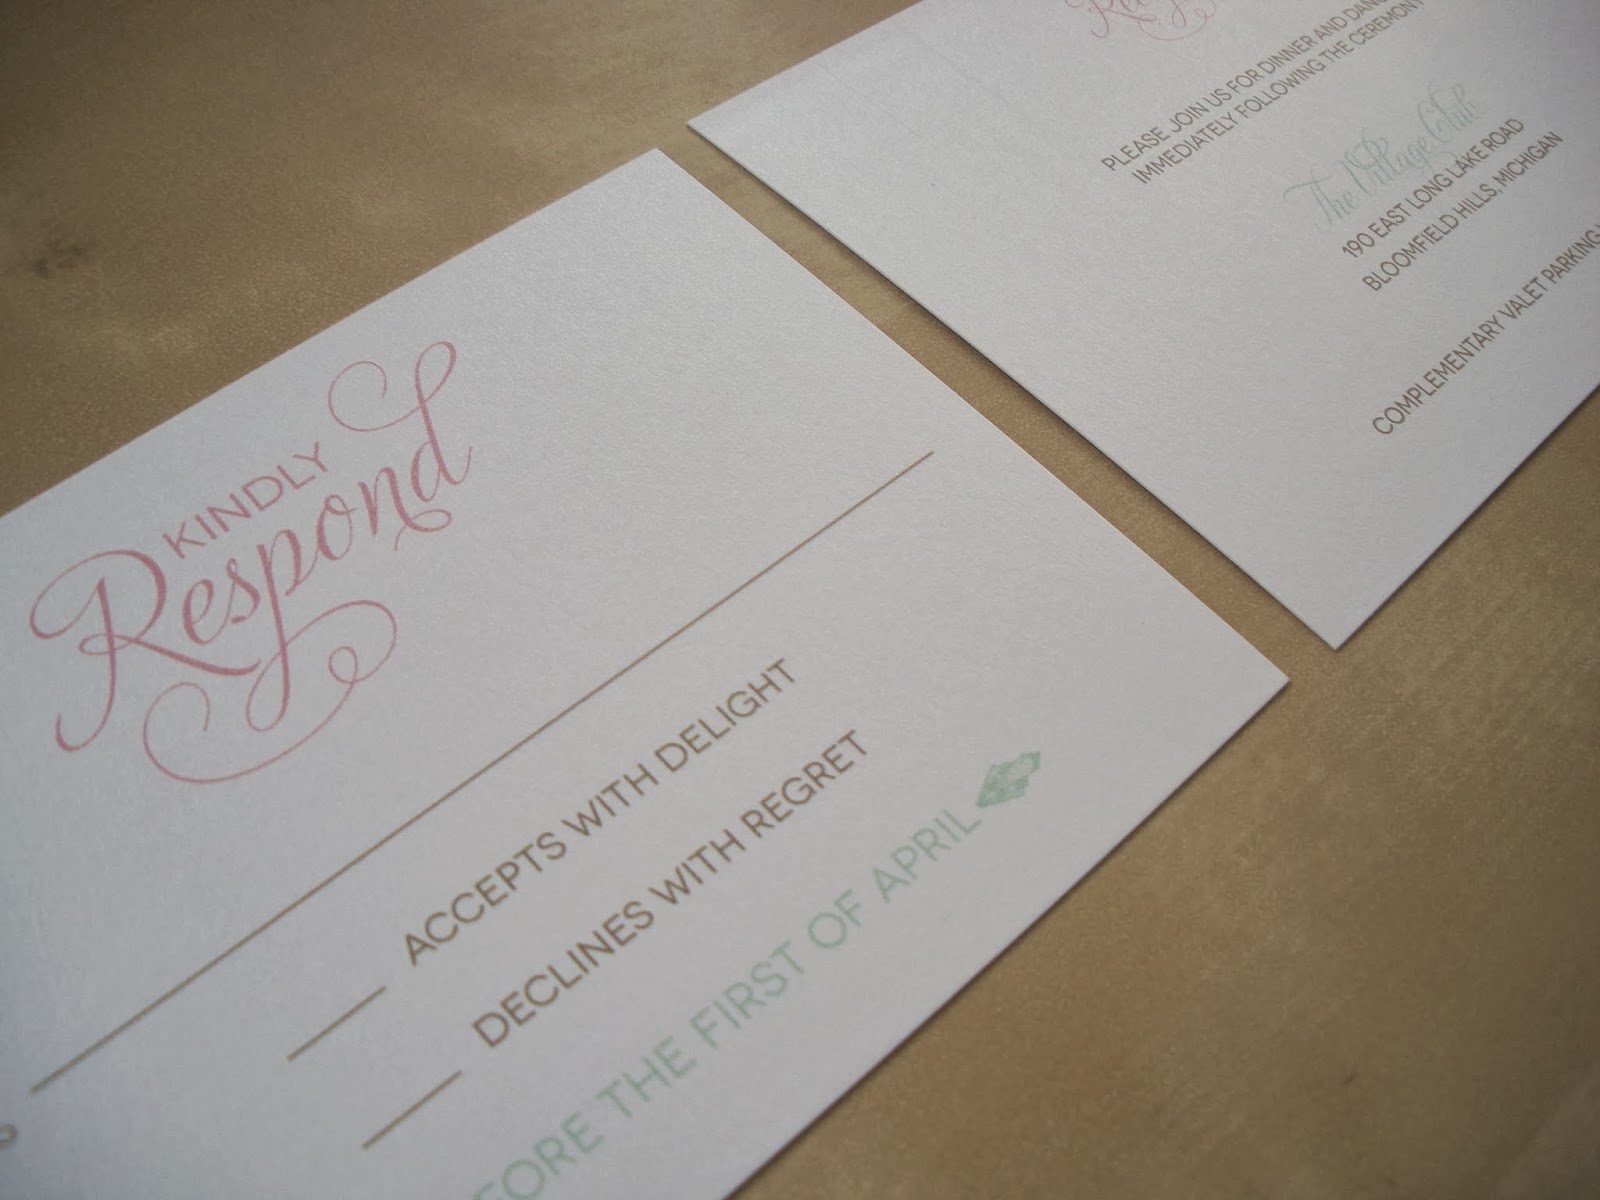 KINDLY
Respond
ACCEPTS WITH DELIGHT
DECLINES WITH REGRET
THE FIRST OF APRIL
PLEASE JOIN US FOR DINNER AND
IMMEDIATELY FOLLOWING THE CEREMONY
The Village Club
190 EAST LONG LAKE ROAD
BLOOMFIELD HILLS, MICHIGAN
COMPLEMENTARY VALET PARKING